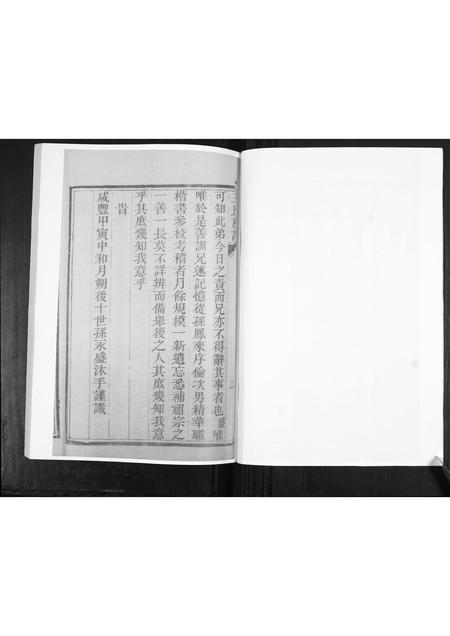 可知此弟今日之責而兄亦不得辭其事者也盛唯
唯於是善訓兄遂記憶從孫鳳來序倫次男精華職
楷書參校考稽者月餘規模一新遺忘悉補祖宗之
一善一長莫不詳辨而備舉後之人其庶幾知我意
乎其庶幾知我意乎
旹
咸豐甲寅中和月朔後十世孫永盛沐手謹識